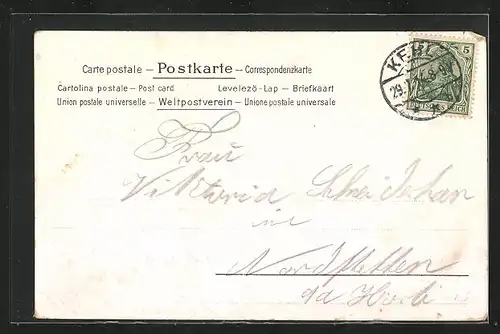 Carte postale — Postkarte — Correspondenzkarte
Cartolina postale — Post card Levelezö-Lap — Briefkaart
Union postale universelle — Weltpostverein — Unione postale universale
KEHL
29.
5
Frau
Viktoria
in
Nordstetten